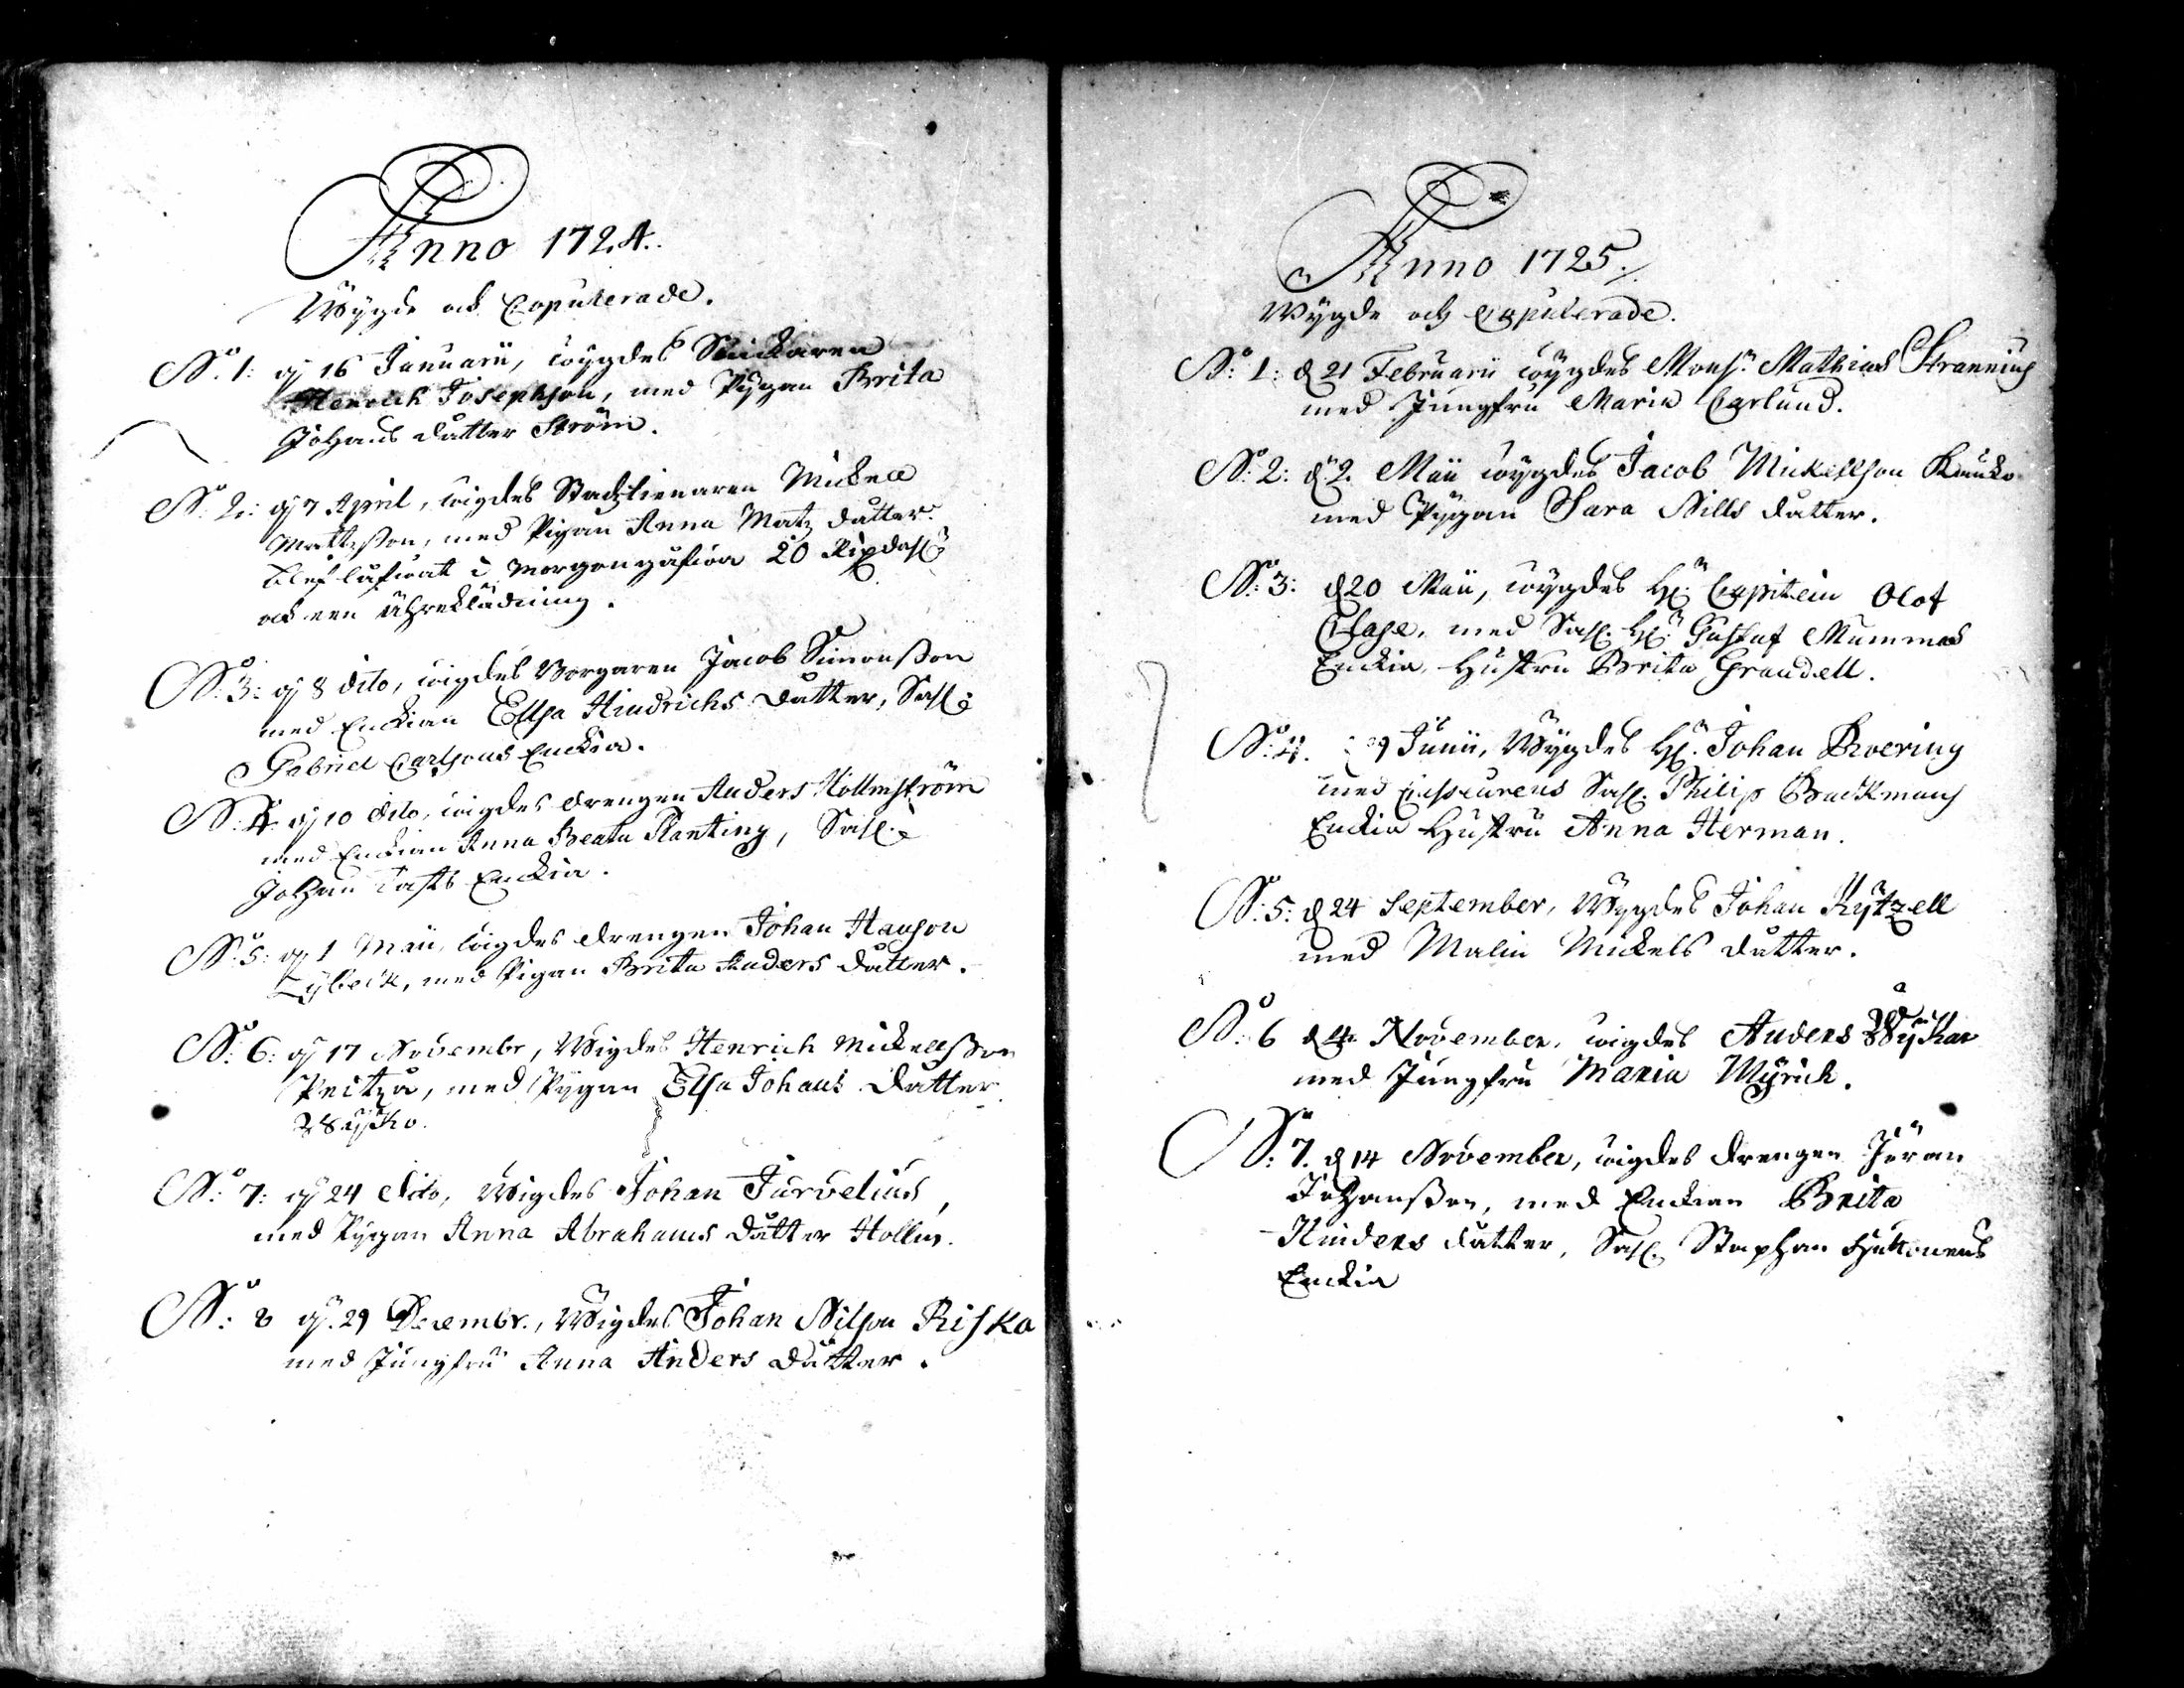 Anno 1724.
Wygde och Copulerade.
No. 1: d 16 Januarii, wygdes Snickaren
Henrich Josephson, med Pygan Brita
Johans datter Ström.
No. 2: d 7 April, wigdes Stadztienaren Mickell
Mattzßon, med Pigan Anna Matz datter.
blef låfwat i Morgongåfwa 20 Rixdahl:r
och een Ähreklädning.
No. 3: d 8 dito, wigdes Borgaren Jacob Simonßon
med Enckian Ellsa Hindrichs datter, Sahl:
Gabriel Carlsons Enckia.
No. 4: d 10 dito, wigdes drengen Anders Hollmström
med Enckian Anna Beata Planting, Sahl:
Johan Tasts Enckia.
No. 5: d 1 Maii, wigdes drengen Johan Hanson
Lybeck, med Pigan Brita Anders datter.
No. 6: d 17 Novembr, Wigdes Henrich Mickellßon
Peitza, med Pygan Elsa Johans datter
No. 7: d 24 dito, Wigdes Johan Jurvelius,
med Pygan Anna Abrahams datter Hollm.
No. 8 d. 29 Decembr., Wigdes Johan Nilson Riska
med Jungfru Anna Anders datter.
Anno 1725.
Wygde och Copulerade.
No. 1: d 21 Februarii wygdes Mons:r Mathias Krannius
med Jungfru Maria Carlund.
No. 2: d 2 Maii wygdes Jacob Mickellson Kauko
med Pygan Sara Nills datter.
No. 3: d 20 Maii, wygdes H:r Capitein Olof
Clase, med Sahl. H:r Gustaf Mummes
Enckia, Hustru Brita Grandell.
No. 4. 29 Junii, Wygdes H:r Johan Broering
med Sahl. Philip Backmans
Enckia Hustru Anna Herman.
No. 5: d 24 September, Wygdes Johan Kytzell
med Malin Mickels datter.
No. 6 d 4 November, wigdes Anders Wykar
med Jungfru Maria Myrich.
No. 7. d 14 November, wigdes drengen Jöran
Johanßon, med Enckian Brita
Hinders datter, Sahl. Staphan Hyttönens
Enckia